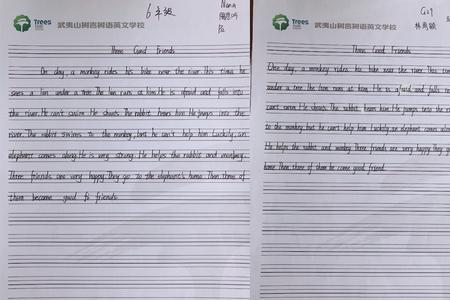 Trees
武夷山树言树语英文学校
6年级
Nana
Three Good Friends
On day, a monkey rides his bike near the river. This time he
sees a lion under a tree. The lion runs at him. He is afraid and falls into
the river. He can't swim. He shouts. The rabbit hears him. He jumps into the
river. The rabbit swims to the monkey, but he can't help him. Luckily, an
elephant comes along. He is very strong. He helps the rabbit and monkey.
Three friends are very happy. They go to the elephant's home. Then three of
them become good fs friends.
Trees
武夷山树言树语英文学校
Three Good Friends
One day, a monkey rides his bike near the river. This time
under a tree. The lion runs at him. He is afraid and falls
can't swim. He shouts. The rabbit hears him. He jumps into the
to the monkey, but he can't help him. Luckily, an elephant comes along
He helps the rabbit and monkey. Three friends are very happy. They go
home. Then three of them be come good friend.